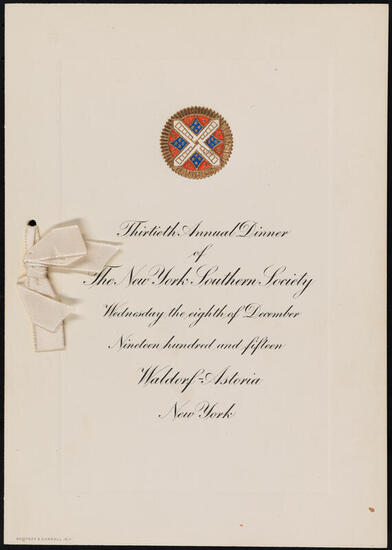 Thirtieth Annual Dinner
of
The New York Southern Society
Wednesday the eighth of December
Nineteen hundred and fifteen
Waldorf-Astoria
New York